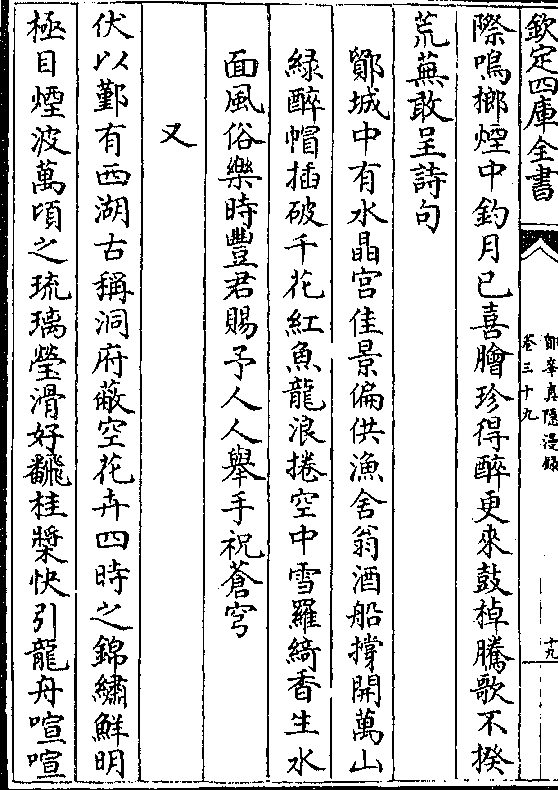 欽定四庫全書
鄮峯真隱漫録
卷三十九
十九
際鳴榔煙中釣月已喜膾珍得醉更來鼓棹騰歌不揆
荒蕪敢呈詩句
鄮城中有水晶宫佳景偏供漁舍翁酒船撐開萬山
緑醉帽插破千花紅魚龍浪捲空中雪羅綺香生水
面風俗樂時豐君賜予人人舉手祝蒼穹
又
伏以鄞有西湖古稱洞府蔽空花卉四時之錦繡鮮明
極目煙波萬頃之琉璃瑩滑好飜桂槳快引龍舟喧喧